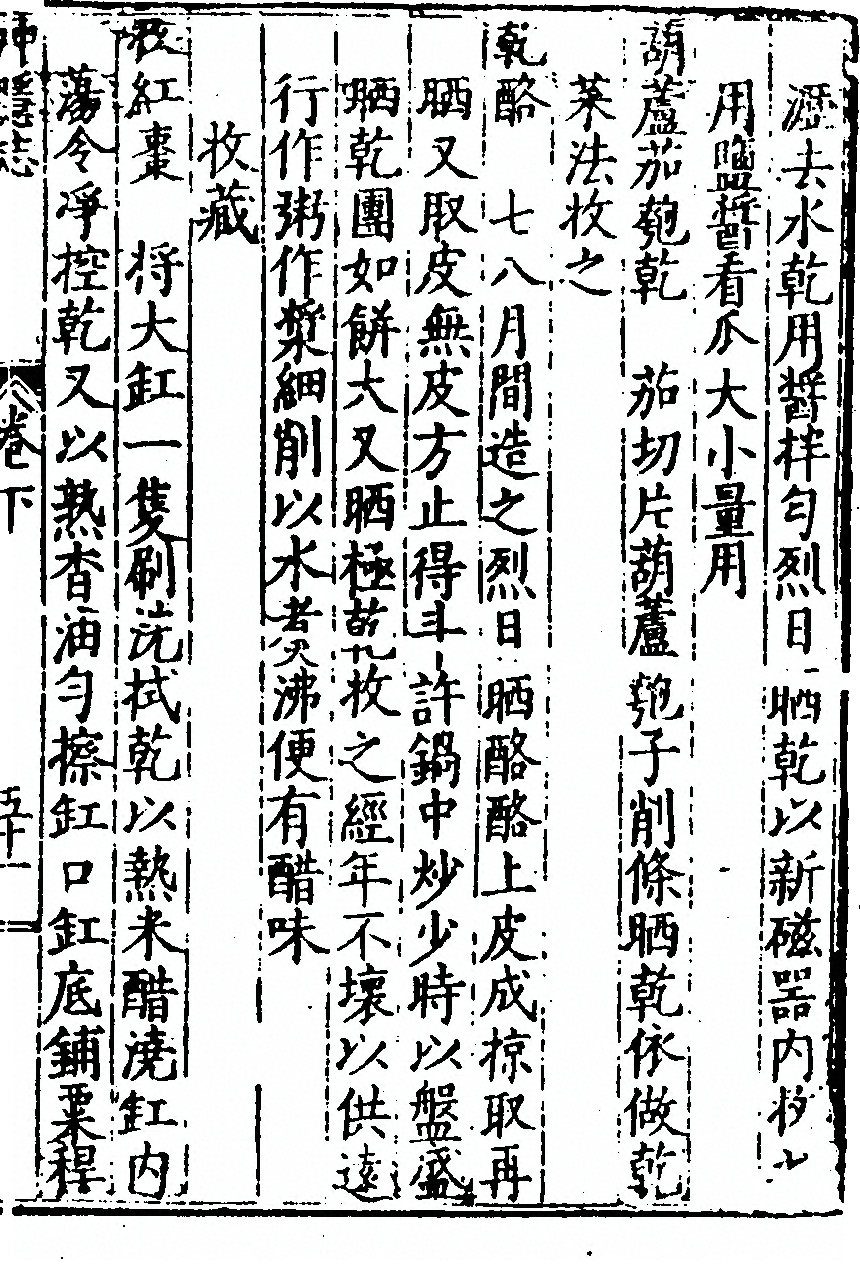 瀝去水乾用醬拌匀烈日晒乾以新磁器内
用鹽醬看瓜大小量用
葫蘆茄匏乾　茄切片葫蘆匏子削條晒乾依做乾
菜法收之
乾酪　七八月間造之烈日晒酪酪上皮成掠取再
晒又取皮無皮方止得斗許鍋中炒少時以盤盛
晒乾團如餅大又晒極乾收之經年不壞以供遠
行作粥作漿細削以水煑沸便有醋味
收藏
收紅棗　將大缸一隻刷洗拭乾以熱米醋澆缸内
蕩令凈控乾又以熟香油匀擦缸口缸底鋪粟稈
卷下
五十一